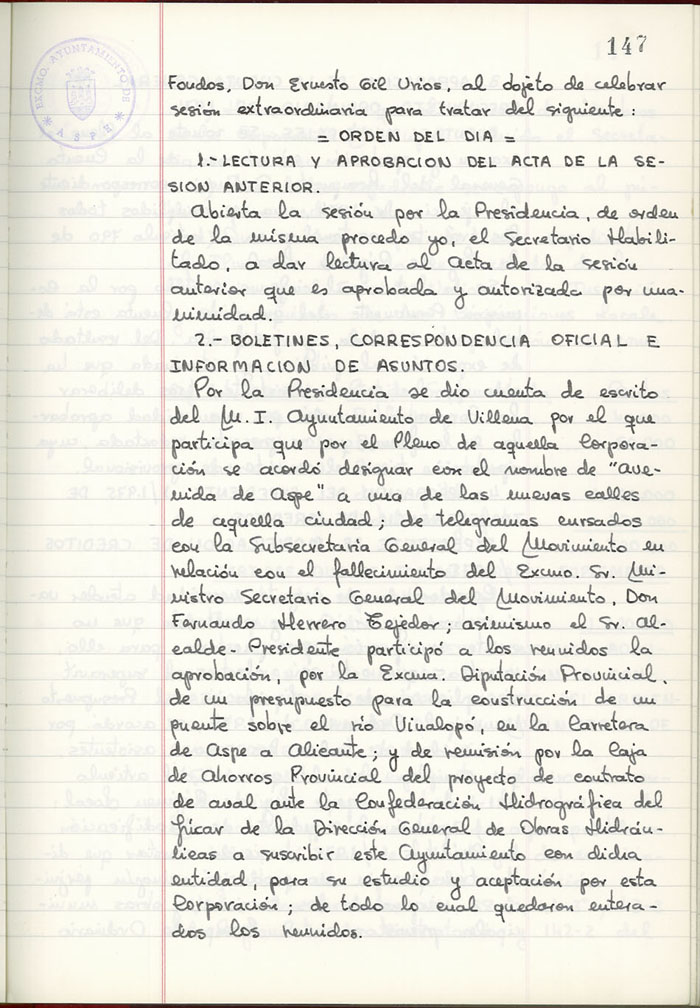 147
EXCMO. AYUNTAMIENTO DE
* ASPE *
Fondos, Don Ernesto Gil Urios, al dojeto de celebrar
sesión extraordinaria para tratar del siguiente:
= ORDEN DEL DIA =
1.- LECTURA Y APROBACION DEL ACTA DE LA SE-
SION ANTERIOR.
Abierta la sesión por la Presidencia, de orden
de la misma procedo yo, el Secretario Habili-
tado, a dar lectura al acta de la sesión
anterior que es aprobada y autorizada por una-
nimidad.
2.- BOLETINES, CORRESPONDENCIA OFICIAL E
INFORMACION DE ASUNTOS.
Por la Presidencia se dio cuenta de escrito
del M. I. Ayuntamiento de Villena por el que
participa que por el Pleno de aquella Corpora-
ción se acordó designar con el nombre de "Ave-
nida de Aspe" a una de las nuevas calles
de aquella ciudad; de telegramas cursados
con la Subsecretaria General del Movimiento en
relación con el fallecimiento del Excmo. Sr. Mi-
nistro Secretario General del Movimiento, Don
Fernando Herrero Tejedor; asimismo el Sr. Al-
calde-Presidente participó a los reunidos la
aprobación, por la Excma. Diputación Provincial,
de un presupuesto para la construcción de un
puente sobre el río Vinalopó, en la Carretera
de Aspe a Alicante; y de remisión por la Caja
de Ahorros Provincial del proyecto de contrato
de aval ante la Confederación Hidrográfica del
Júcar de la Dirección General de Obras Hidráu-
licas a suscribir este Ayuntamiento con dicha
entidad, para su estudio y aceptación por esta
Corporación; de todo lo cual quedaron entera-
dos los reunidos.